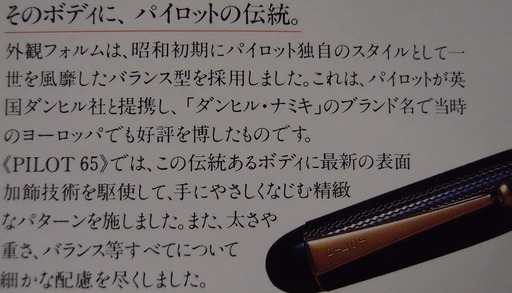 そのボディに、パイロットの伝統。
外観フォルムは、昭和初期にパイロット独自のスタイルとして一
世を風靡したバランス型を採用しました。これは、パイロットが英
国ダンヒル社と提携し、「ダンヒル・ナミキ」のブランド名で当時
のヨーロッパでも好評を博したものです。
《PILOT 65》では、この伝統あるボディに最新の表面
加飾技術を駆使して、手にやさしくなじむ精緻
なパターンを施しました。また、太さや
重さ、バランス等すべてについて
細かな配慮を尽くしました。
PILOT